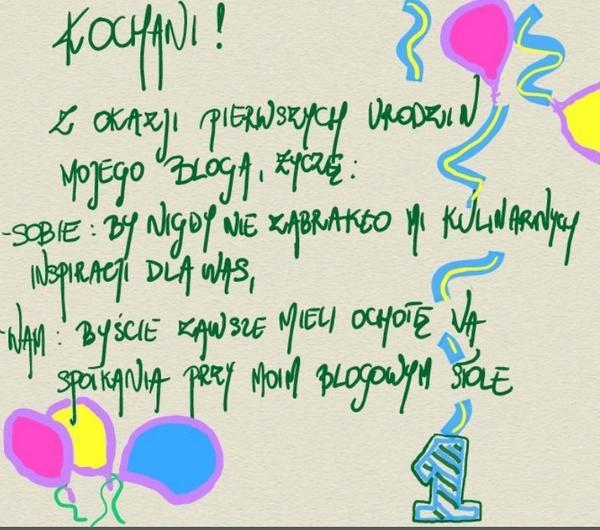 KOCHANI!
Z OKAZJI PIERWSZYCH URODZIN
MOJEGO BLOGA, ŻYCZĘ:
-SOBIE: BY NIGDY NIE ZABRAKŁO MI KULINARNYCH
INSPIRACJI DLA WAS,
-WAM: BYŚCIE ZAWSZE MIELI OCHOTĘ NA
SPOTKANIA PRZY MOIM BLOGOWYM STOLE
1